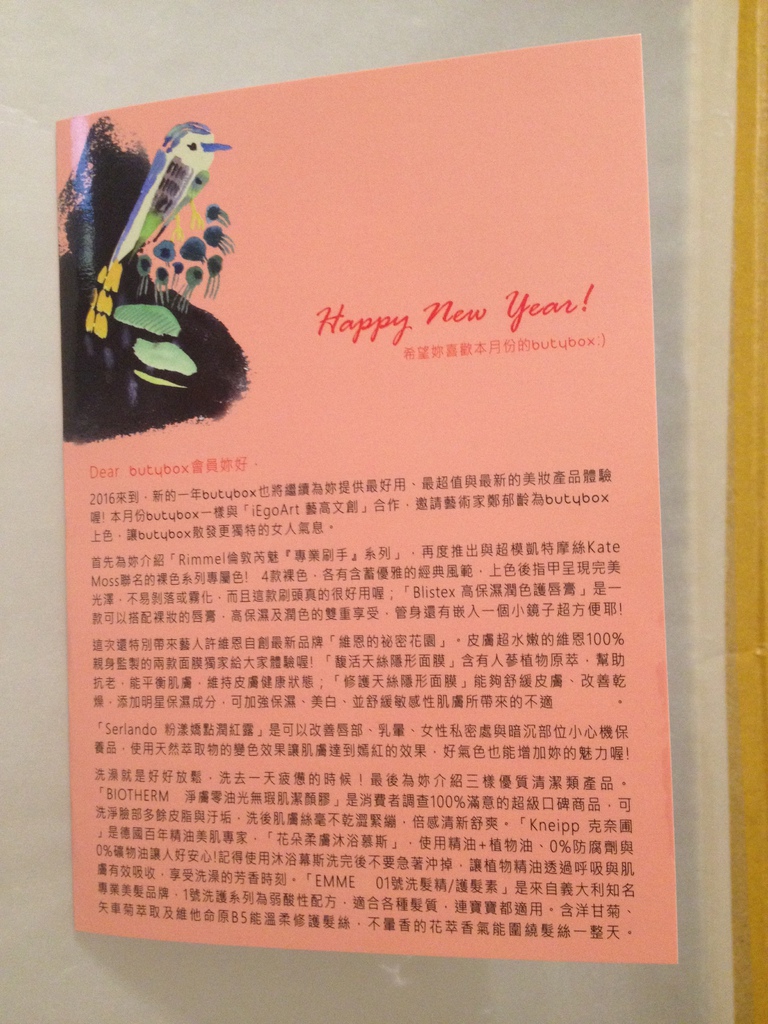 Happy New Year!
希望妳喜歡本月份的butybox:)
Dear butybox會員妳好，
2016來到，新的一年butybox也將繼續為妳提供最好用、最超值與最新的美妝產品體驗
喔! 本月份butybox一樣與「iEgoArt 藝高文創」合作，邀請藝術家鄭郁齡為butybox
上色，讓butybox散發更獨特的女人氣息。
首先為妳介紹「Rimmel倫敦芮魅『專業刷手』系列」，再度推出與超模凱特摩絲Kate
Moss聯名的裸色系列專屬色! 4款裸色，各有含蓄優雅的經典風範，上色後指甲呈現完美
光澤，不易剝落或霧化，而且這款刷頭真的很好用喔；「Blistex 高保濕潤色護唇膏」是一
款可以搭配裸妝的唇膏，高保濕及潤色的雙重享受，管身還有嵌入一個小鏡子超方便耶!
這次還特別帶來藝人許維恩自創最新品牌「維恩的祕密花園」。皮膚超水嫩的維恩100%
親身監製的兩款面膜獨家給大家體驗喔! 「馥活天絲隱形面膜」含有人蔘植物原萃，幫助
抗老，能平衡肌膚，維持皮膚健康狀態；「修護天絲隱形面膜」能夠舒緩皮膚、改善乾
燥，添加明星保濕成分，可加強保濕、美白、並舒緩敏感性肌膚所帶來的不適。
「Serlando 粉漾嬌點潤紅露」是可以改善唇部、乳暈、女性私密處與暗沉部位小心機保
養品，使用天然萃取物的變色效果讓肌膚達到嫣紅的效果，好氣色也能增加妳的魅力喔!
洗澡就是好好放鬆，洗去一天疲憊的時候！最後為妳介紹三樣優質清潔類產品。
「BIOTHERM 淨膚零油光無瑕肌潔顏膠」是消費者調查100%滿意的超級口碑商品，可
洗淨臉部多餘皮脂與汙垢，洗後肌膚絲毫不乾澀緊繃，倍感清新舒爽。「Kneipp 克奈圃
」是德國百年精油美肌專家，「花朵柔膚沐浴慕斯」，使用精油+植物油、0%防腐劑與
0%礦物油讓人好安心!記得使用沐浴幕斯洗完後不要急著沖掉，讓植物精油透過呼吸與肌
膚有效吸收，享受洗澡的芳香時刻。「EMME 01號洗髮精/護髮素」是來自義大利知名
專業美髮品牌，1號洗護系列為弱酸性配方，適合各種髮質，連寶寶都適用。含洋甘菊、
矢車菊萃取及維他命原B5能溫柔修護髮絲，不暈香的花萃香氣能圍繞髮絲一整天。